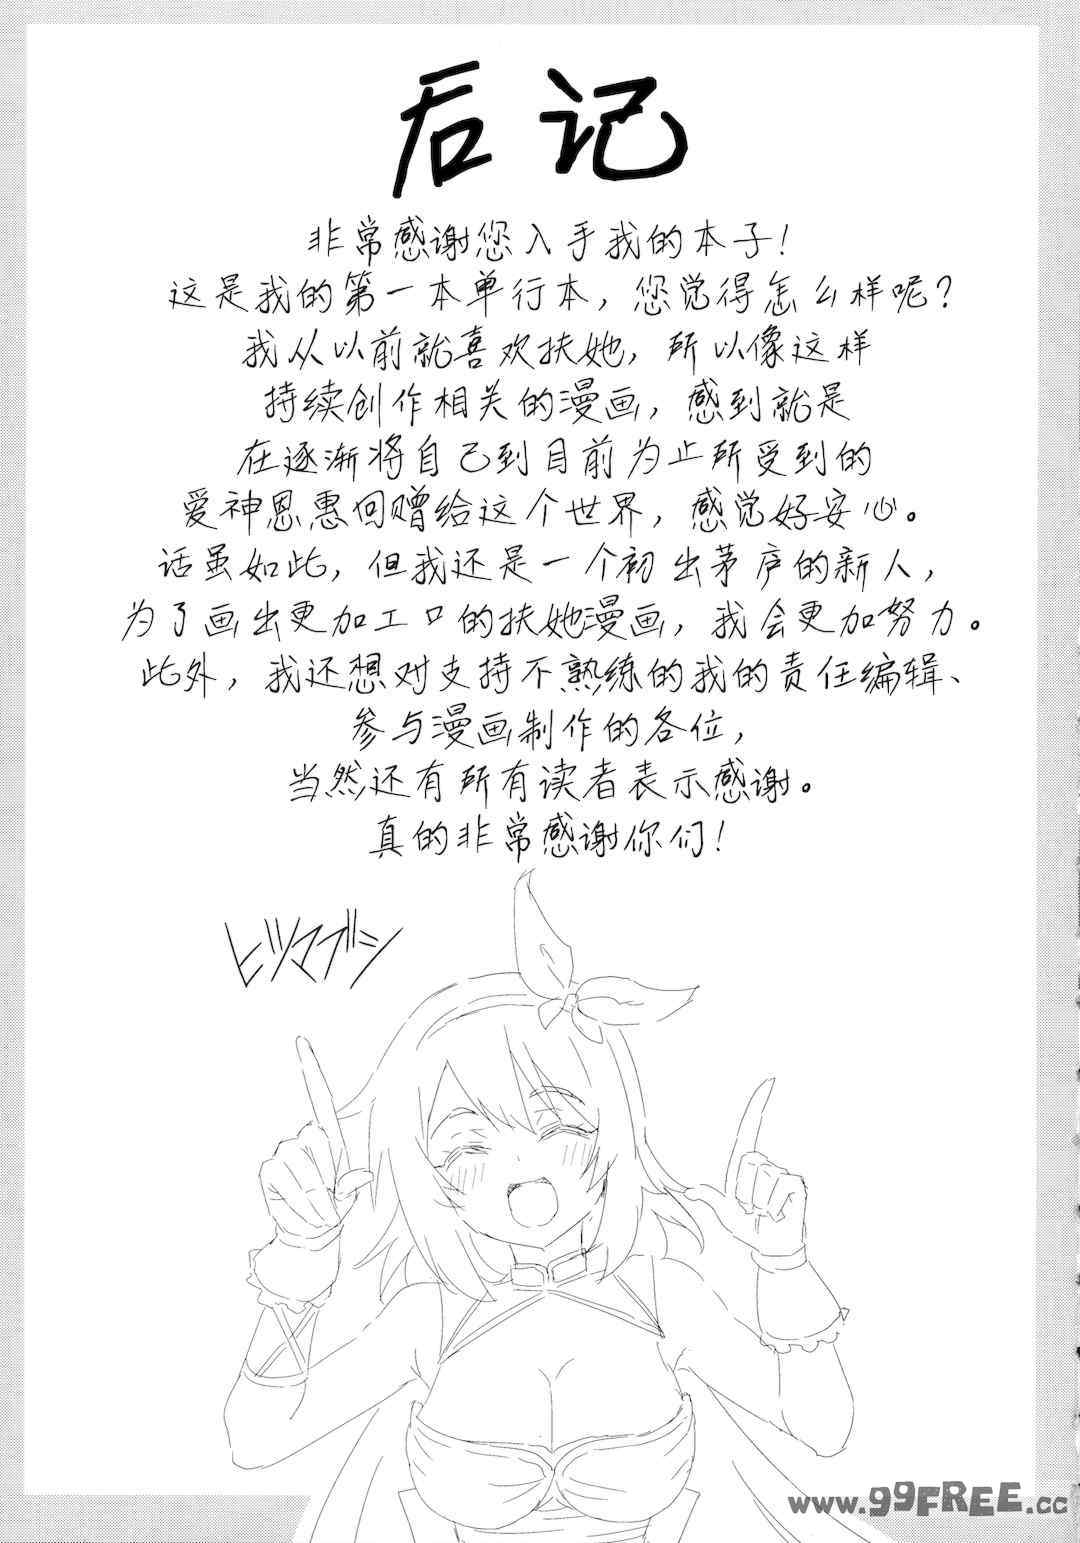 后记
非常感谢您入手我的本子！
这是我的第一本单行本，您觉得怎么样呢？
我从以前就喜欢扶她，所以像这样
持续创作相关的漫画，感到就是
在逐渐将自己到目前为止所受到的
爱神恩惠回赠给这个世界，感觉好安心。
话虽如此，但我还是一个初出茅庐的新人，
为了画出更加工口的扶她漫画，我会更加努力。
此外，我还想对支持不熟练的我的责任编辑、
参与漫画制作的各位，
当然还有所有读者表示感谢。
真的非常感谢你们！
ヒツマブシ
www.99FREE.cc